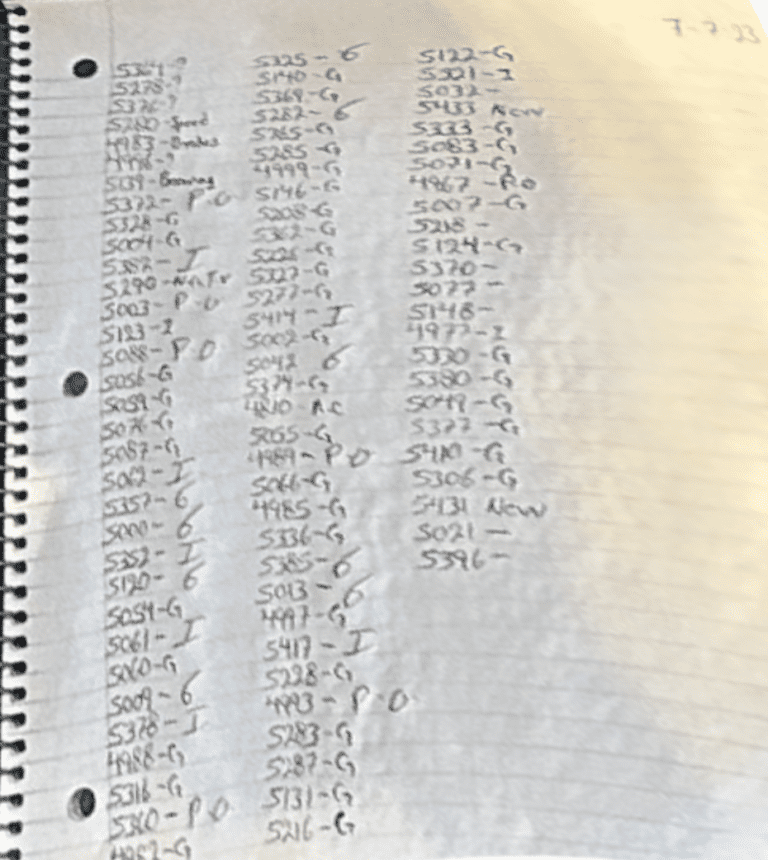 7-7-23
5364-?
5278-?
5376-?
5280-Speed
4983-Brakes
4996-?
5139-
5372-P.O
5328-G
5004-G
5382-I
5290-
5003-P.O
5123-I
5088-P O
5056-G
5059-G
5076-G
5087-G
5062-I
5357-G
5000-G
5352-I
5120-G
5054-G
5061-I
5060-G
5009-G
5378-I
4988-G
5316-G
5360-P.O
5325-G
5140-G
5369-G
5282-G
5265-G
5285-G
4999-G
5146-G
5208-G
5362-G
5226-G
5327-G
5277-G
5414-I
5002-G
5042 G
5374-G
AC
5055-G
4989-P O
5066-G
4985-G
5336-G
5385-G
5013-G
4997-G
5417-I
5228-G
4993-P.O
5283-G
5287-G
5131-G
5216-G
5122-G
5321-I
5032-
5433 New
5333-G
5083-G
5071-G
4967-P.O
5007-G
5218-
5124-G
5370-
5077-
5148-
4977-I
5330-G
5380-G
5049-G
5377-G
5410-G
5306-G
5431 New
5021-
5396-